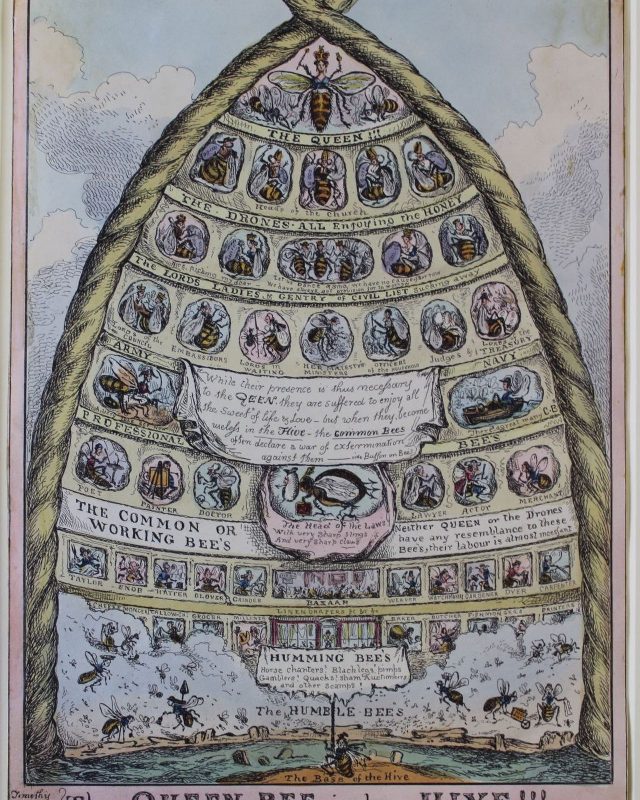 THE QUEEN!!!
Heads of the Church
THE DRONES ALL Enjoying the HONEY
THE LORDS LADIES & GENTRY of CIVIL LIST Sucking away
Lords of the
Council
EMBASSIDORS
LORDS in
WAITING
HER MAJESTYS
MINISTERS
OFFICERS
of the
Judges &c
Lords of the
TREASURY
ARMY
NAVY
While their presence is thus necessary
to the QEEN. they are suffered to enjoy all
the Sweet of life & Love - but when they become
useless in the Hive - the common Bees
often declare a war of extermination
against them
vide Buffon on Bees
PROFESSIONAL
BEE'S
POET
PAINTER
DOCTOR
LAWYER
ACTOR
MERCHANT
The Head of the Laws
With very Sharp Stings
And very Sharp Claws
THE COMMON OR
WORKING BEE'S
Neither QUEEN or the Drones
have any resemblance to these
Bees, their labour is almost incesant
TAYLOR
SNOB
HATTER
GLOVER
GRINDER
BAZAAR
WEAVER
WATCHMAN
GARDENER
LINENDRAPERS &c &c &c
GROCER
BAKER
BUTCHER
PAINTERS
HUMMING BEES
Horse chanters! Blacklegs! pimps
Gamblers! Quacks! Sham Auctioniers
and other Scamps!
The HUMBLE BEES
The Base of the Hive
Timothy
The QUEEN BEE in her HIVE!!!